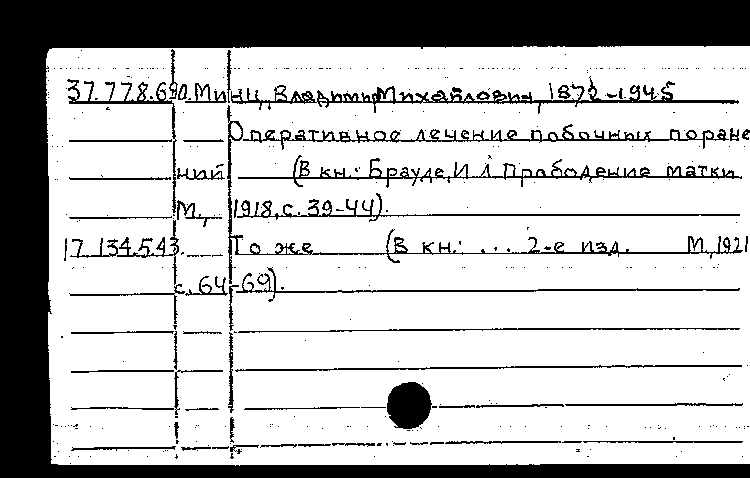 37.778.690. Минц, Владимир Михайлович, 1872-1945
Оперативное лечение побочных поране
ний (В кн.: Брауде, И Л Прободение матки
М., 1918, с. 39-44).
17.134.543. То же (В кн.: ... 2-е изд. М., 1921
с. 64-69).